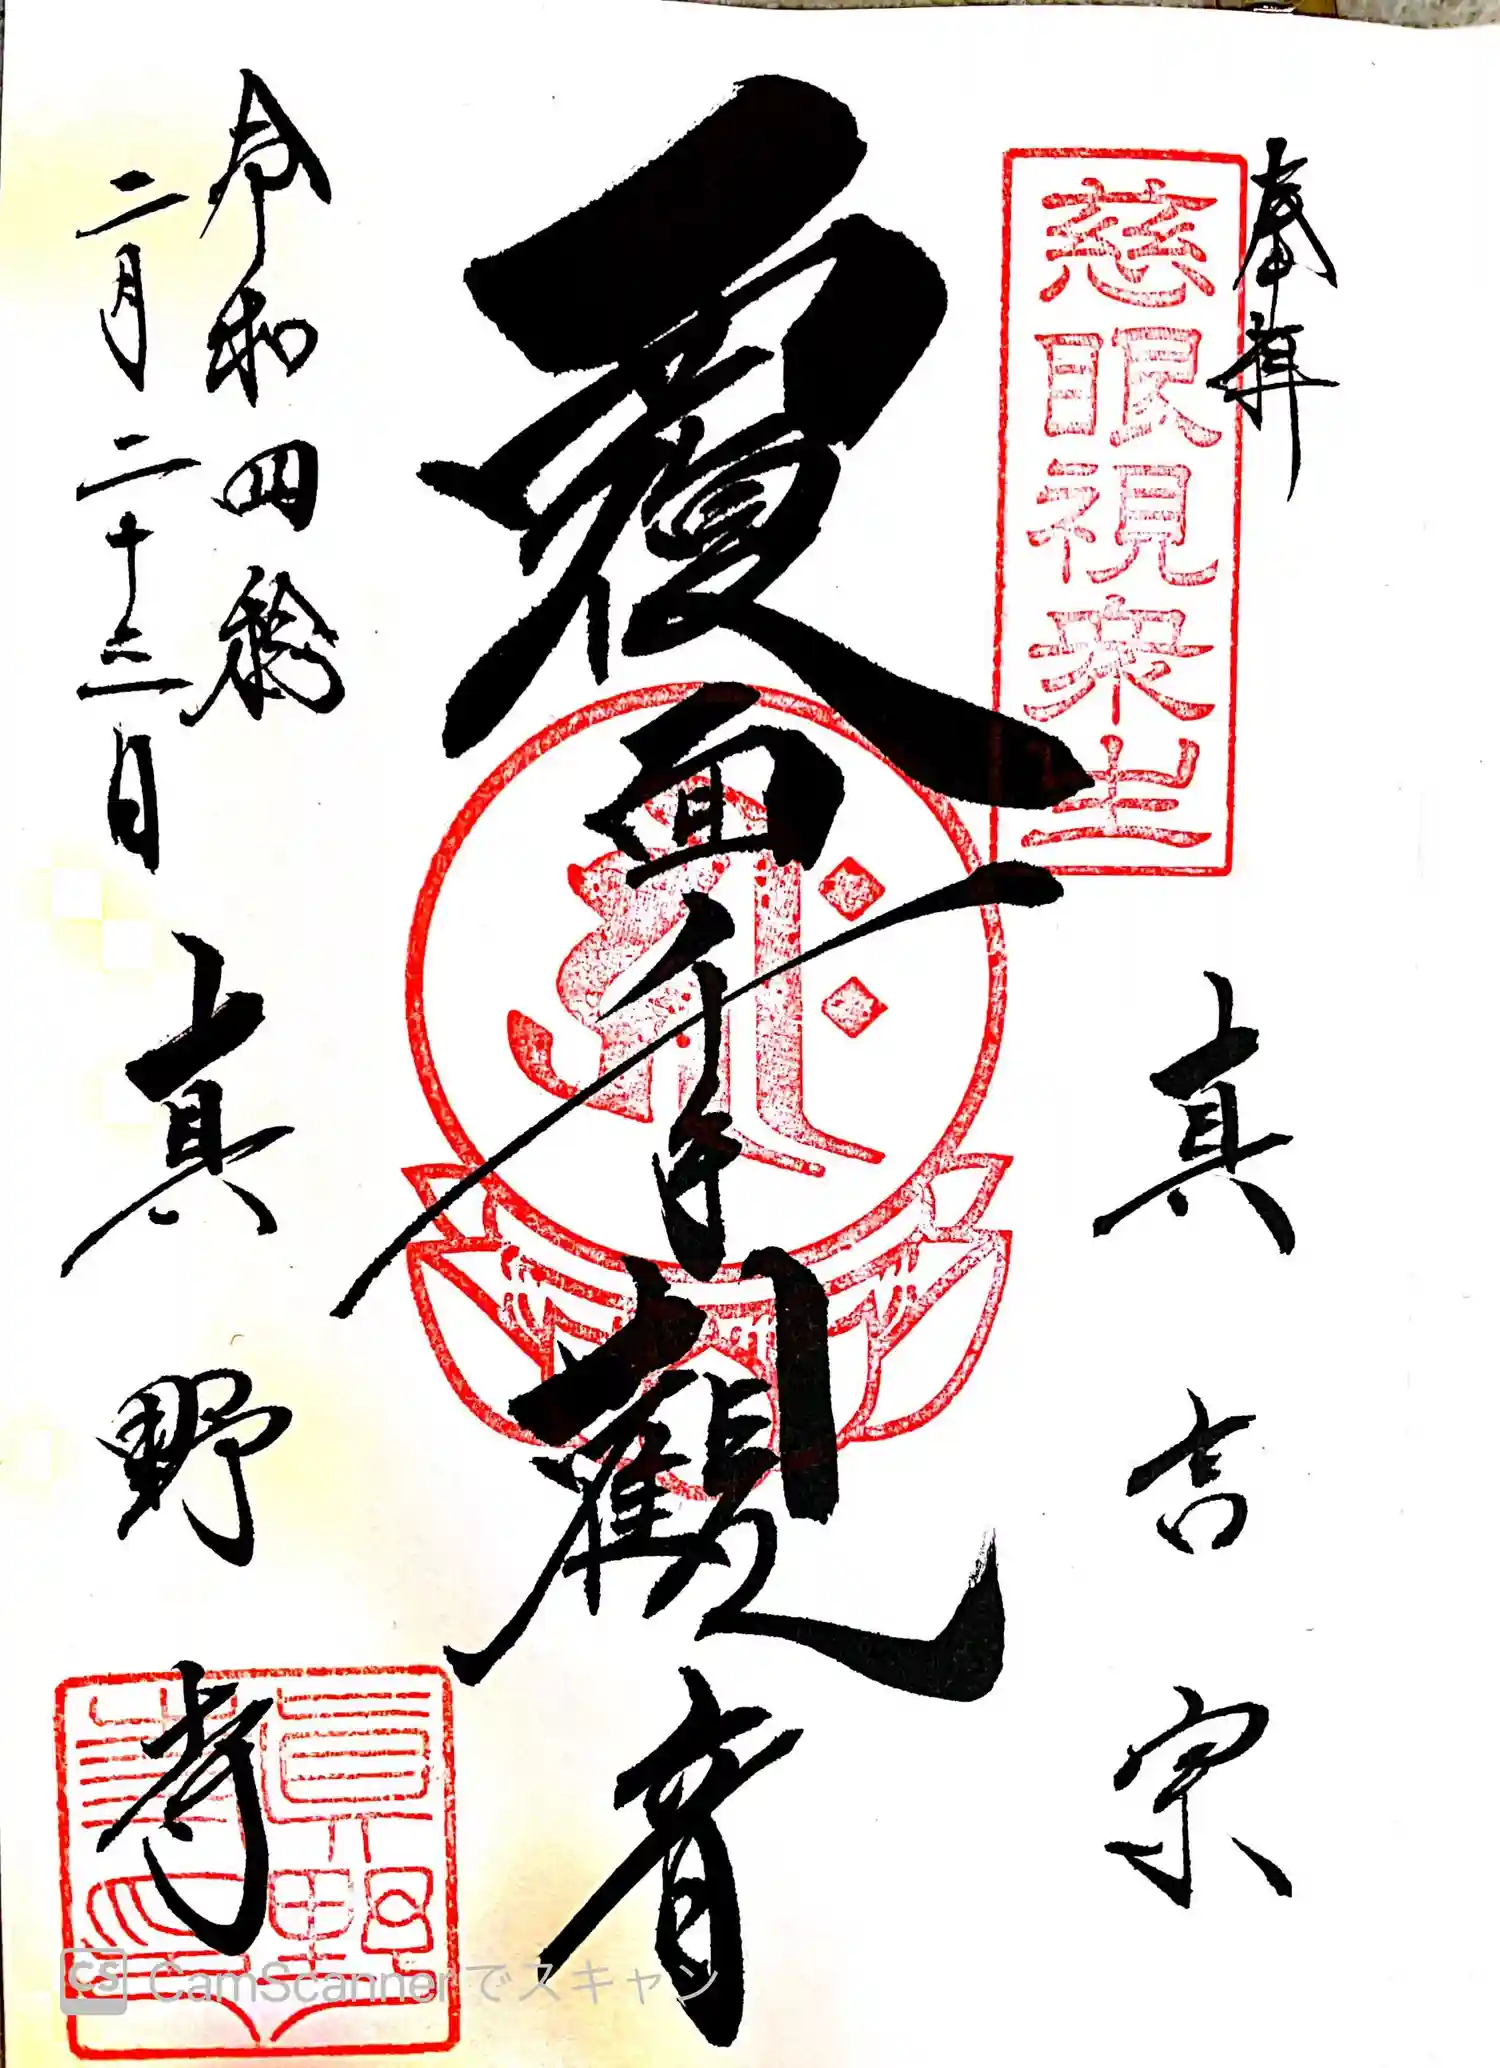 奉拝
慈眼視衆生
真言宗
覆面千手觀音
令和四
二月二十三日
真野寺
CS CamScannerでスキャン